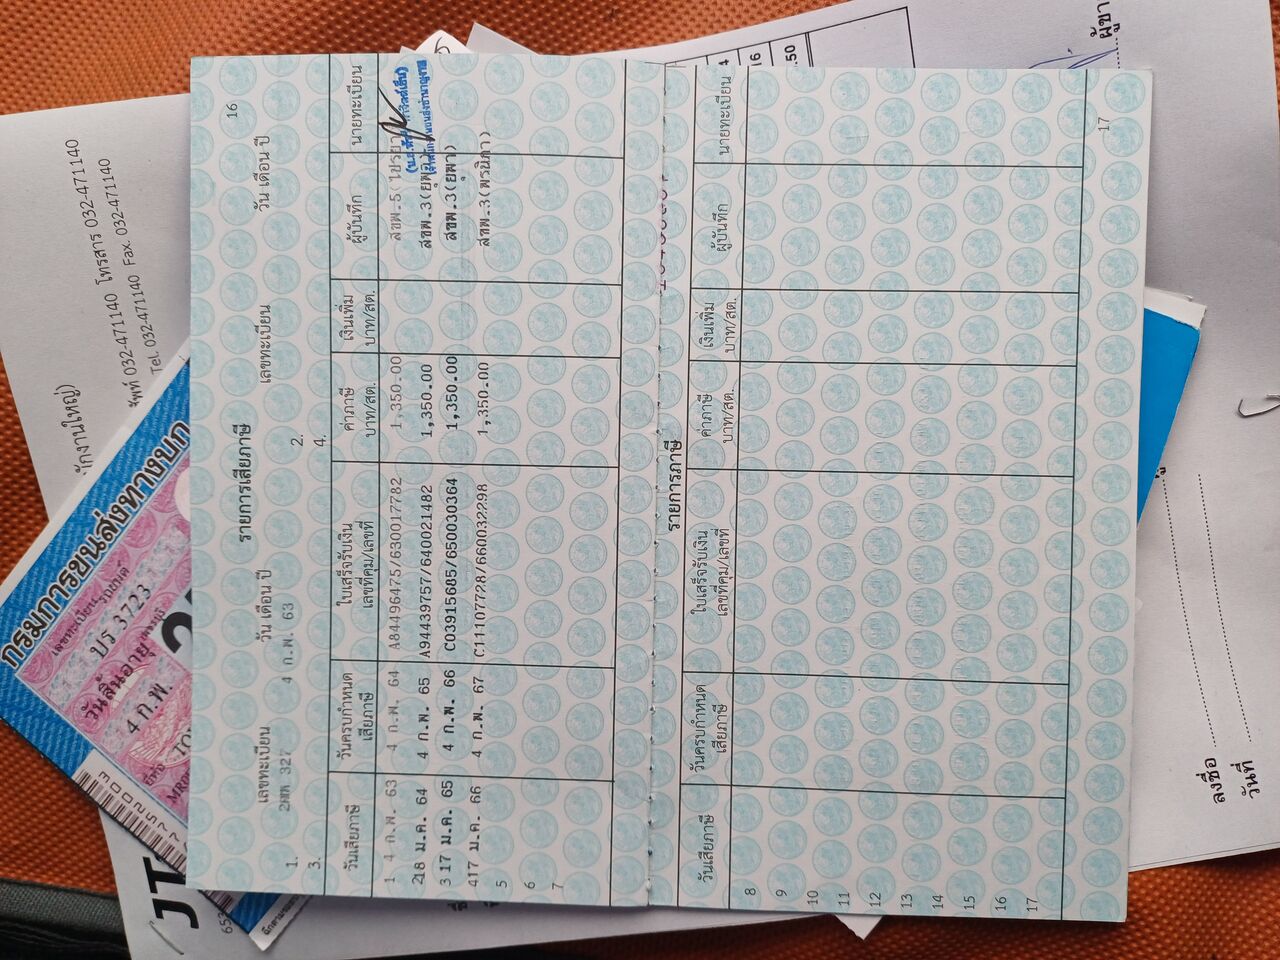 16
รายการเสียภาษี
เลขทะเบียน วัน เดือน ปี เลขทะเบียน วัน เดือน ปี
1. 2ฒฒ 327 4 ก.พ. 63 2.
3. 4.
วันเสียภาษี วันครบกำหนดเสียภาษี ใบเสร็จรับเงิน เลขที่คุม/เลขที่ ค่าภาษี บาท/สต. เงินเพิ่ม บาท/สต. ผู้บันทึก นายทะเบียน
1 4 ก.พ. 63 4 ก.พ. 64 A84496475/630017782 1,350.00
2 18 ม.ค. 64 4 ก.พ. 65 A94439757/640021482 1,350.00 สขพ.3(ยุพา)
3 17 ม.ค. 65 4 ก.พ. 66 C03915685/650030364 1,350.00 สขพ.3(ยุพา)
4 17 ม.ค. 66 4 ก.พ. 67 C11107728/660032298 1,350.00 สขพ.3(พรนิภา)
5
6
7
รายการภาษี
วันเสียภาษี วันครบกำหนดเสียภาษี ใบเสร็จรับเงิน เลขที่คุม/เลขที่ ค่าภาษี บาท/สต. เงินเพิ่ม บาท/สต. ผู้บันทึก นายทะเบียน
8
9
10
11
12
13
14
15
16
17
17
กรมการขนส่งทางบก
เลขทะเบียน
ปร 3723
วันสิ้นอายุ
4 ก.พ.
JT
โทรสาร 032-471140
032-471140
Tel. 032-471140 Fax. 032-471140
ลงชื่อ
วันที่
.50